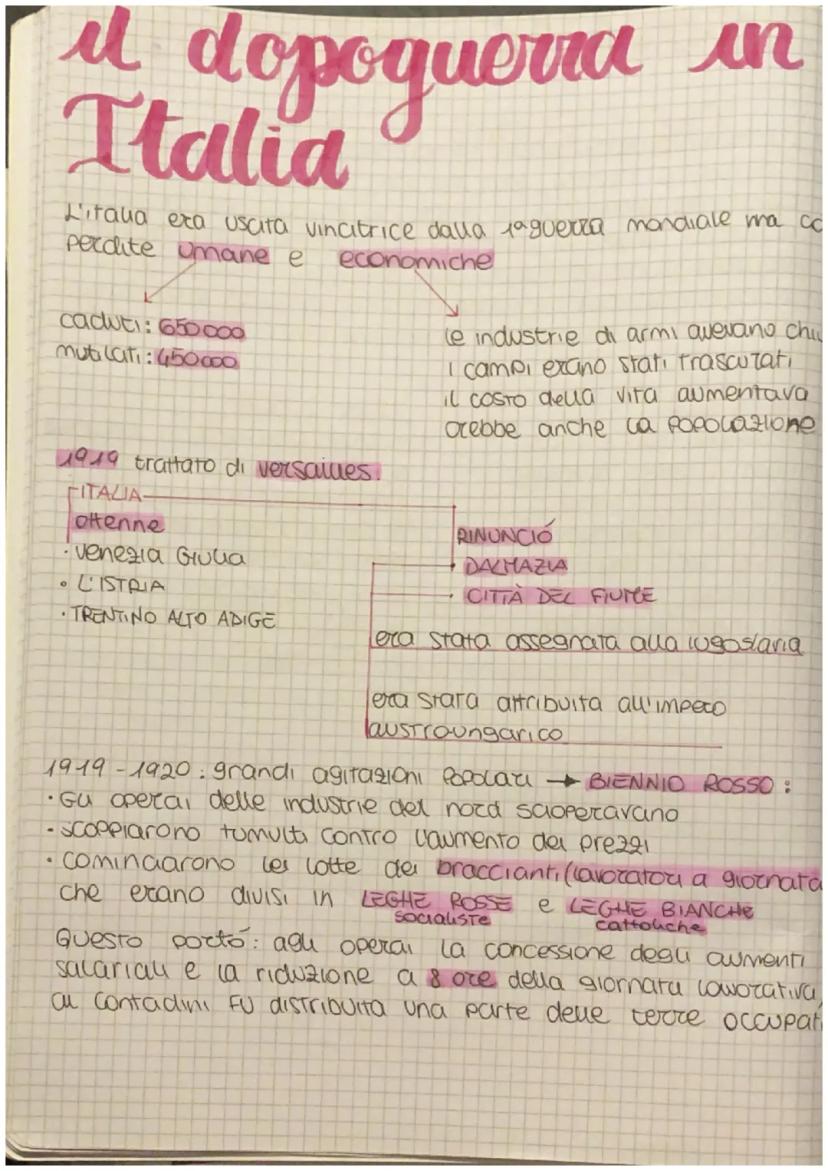 il dopoguerra in
Italia
L'italia era uscita vincitrice dalla 1ª guerra mondiale ma co
perdite umane e economiche
caduti: 650 000
mutilati: 450 000
le industrie di armi avevano chiu
i campi erano stati trascurati
il costo della vita aumentava
crebbe anche la popolazione
1919 trattato di versailles:
ITALIA
ottenne
· Venezia Giulia
• L'ISTRIA
· TRENTINO ALTO ADIGE
RINUNCIÓ
DALMAZIA
CITTÀ DEL FIUME
era stata assegnata alla iugoslavia
era stata attribuita all'impero
austroungarico
1919-1920: grandi agitazioni popolari → BIENNIO ROSSO:
· Gli operai delle industrie del nord scioperavano
· scoppiarono tumulti contro l'aumento dei prezzi
· cominciarono les lotte dei braccianti (lavoratori a giornata
che erano divisi in LEGHE ROSSE e LEGHE BIANCHE
socialiste cattoliche
Questo portó: agli operai la concessione degli aumenti
salariali e la riduzione a 8 ore della giornata lavorativa,
ai contadini fu distribuita una parte delle terre occupat